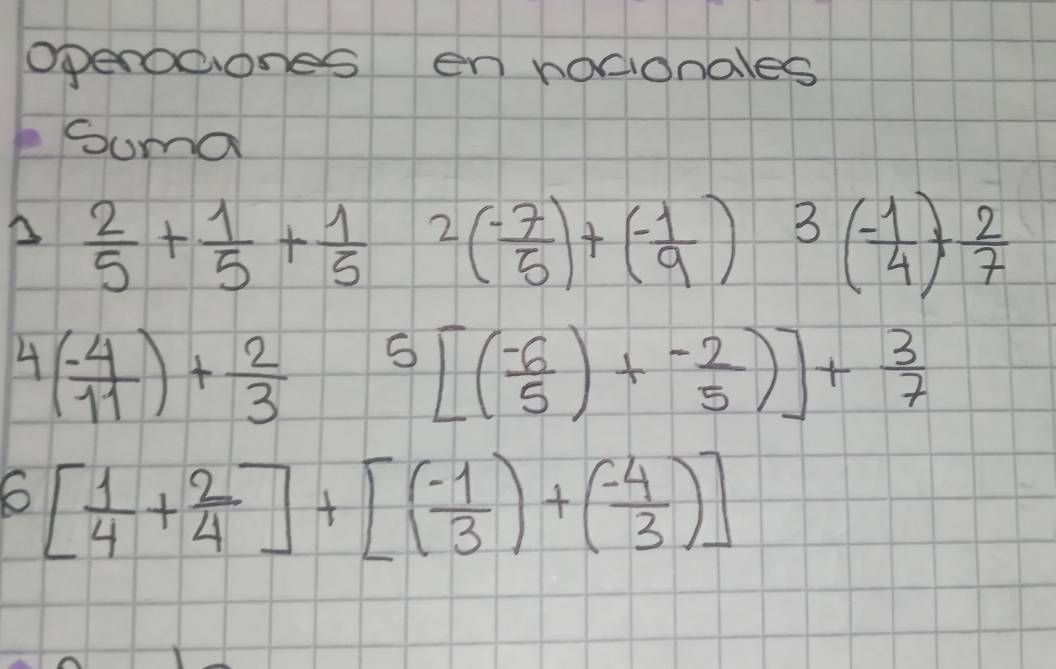 Operaciones en racionales
• Suma
1 2/5 + 1/5 + 1/5 2 (-7/5) + (-1/9) 3 (-1/4) + 2/7
4 (-4/11) + 2/3 5 [(-6/5) + -2/5)] + 3/7
6 [1/4 + 2/4] + [(-1/3) + (-4/3)]